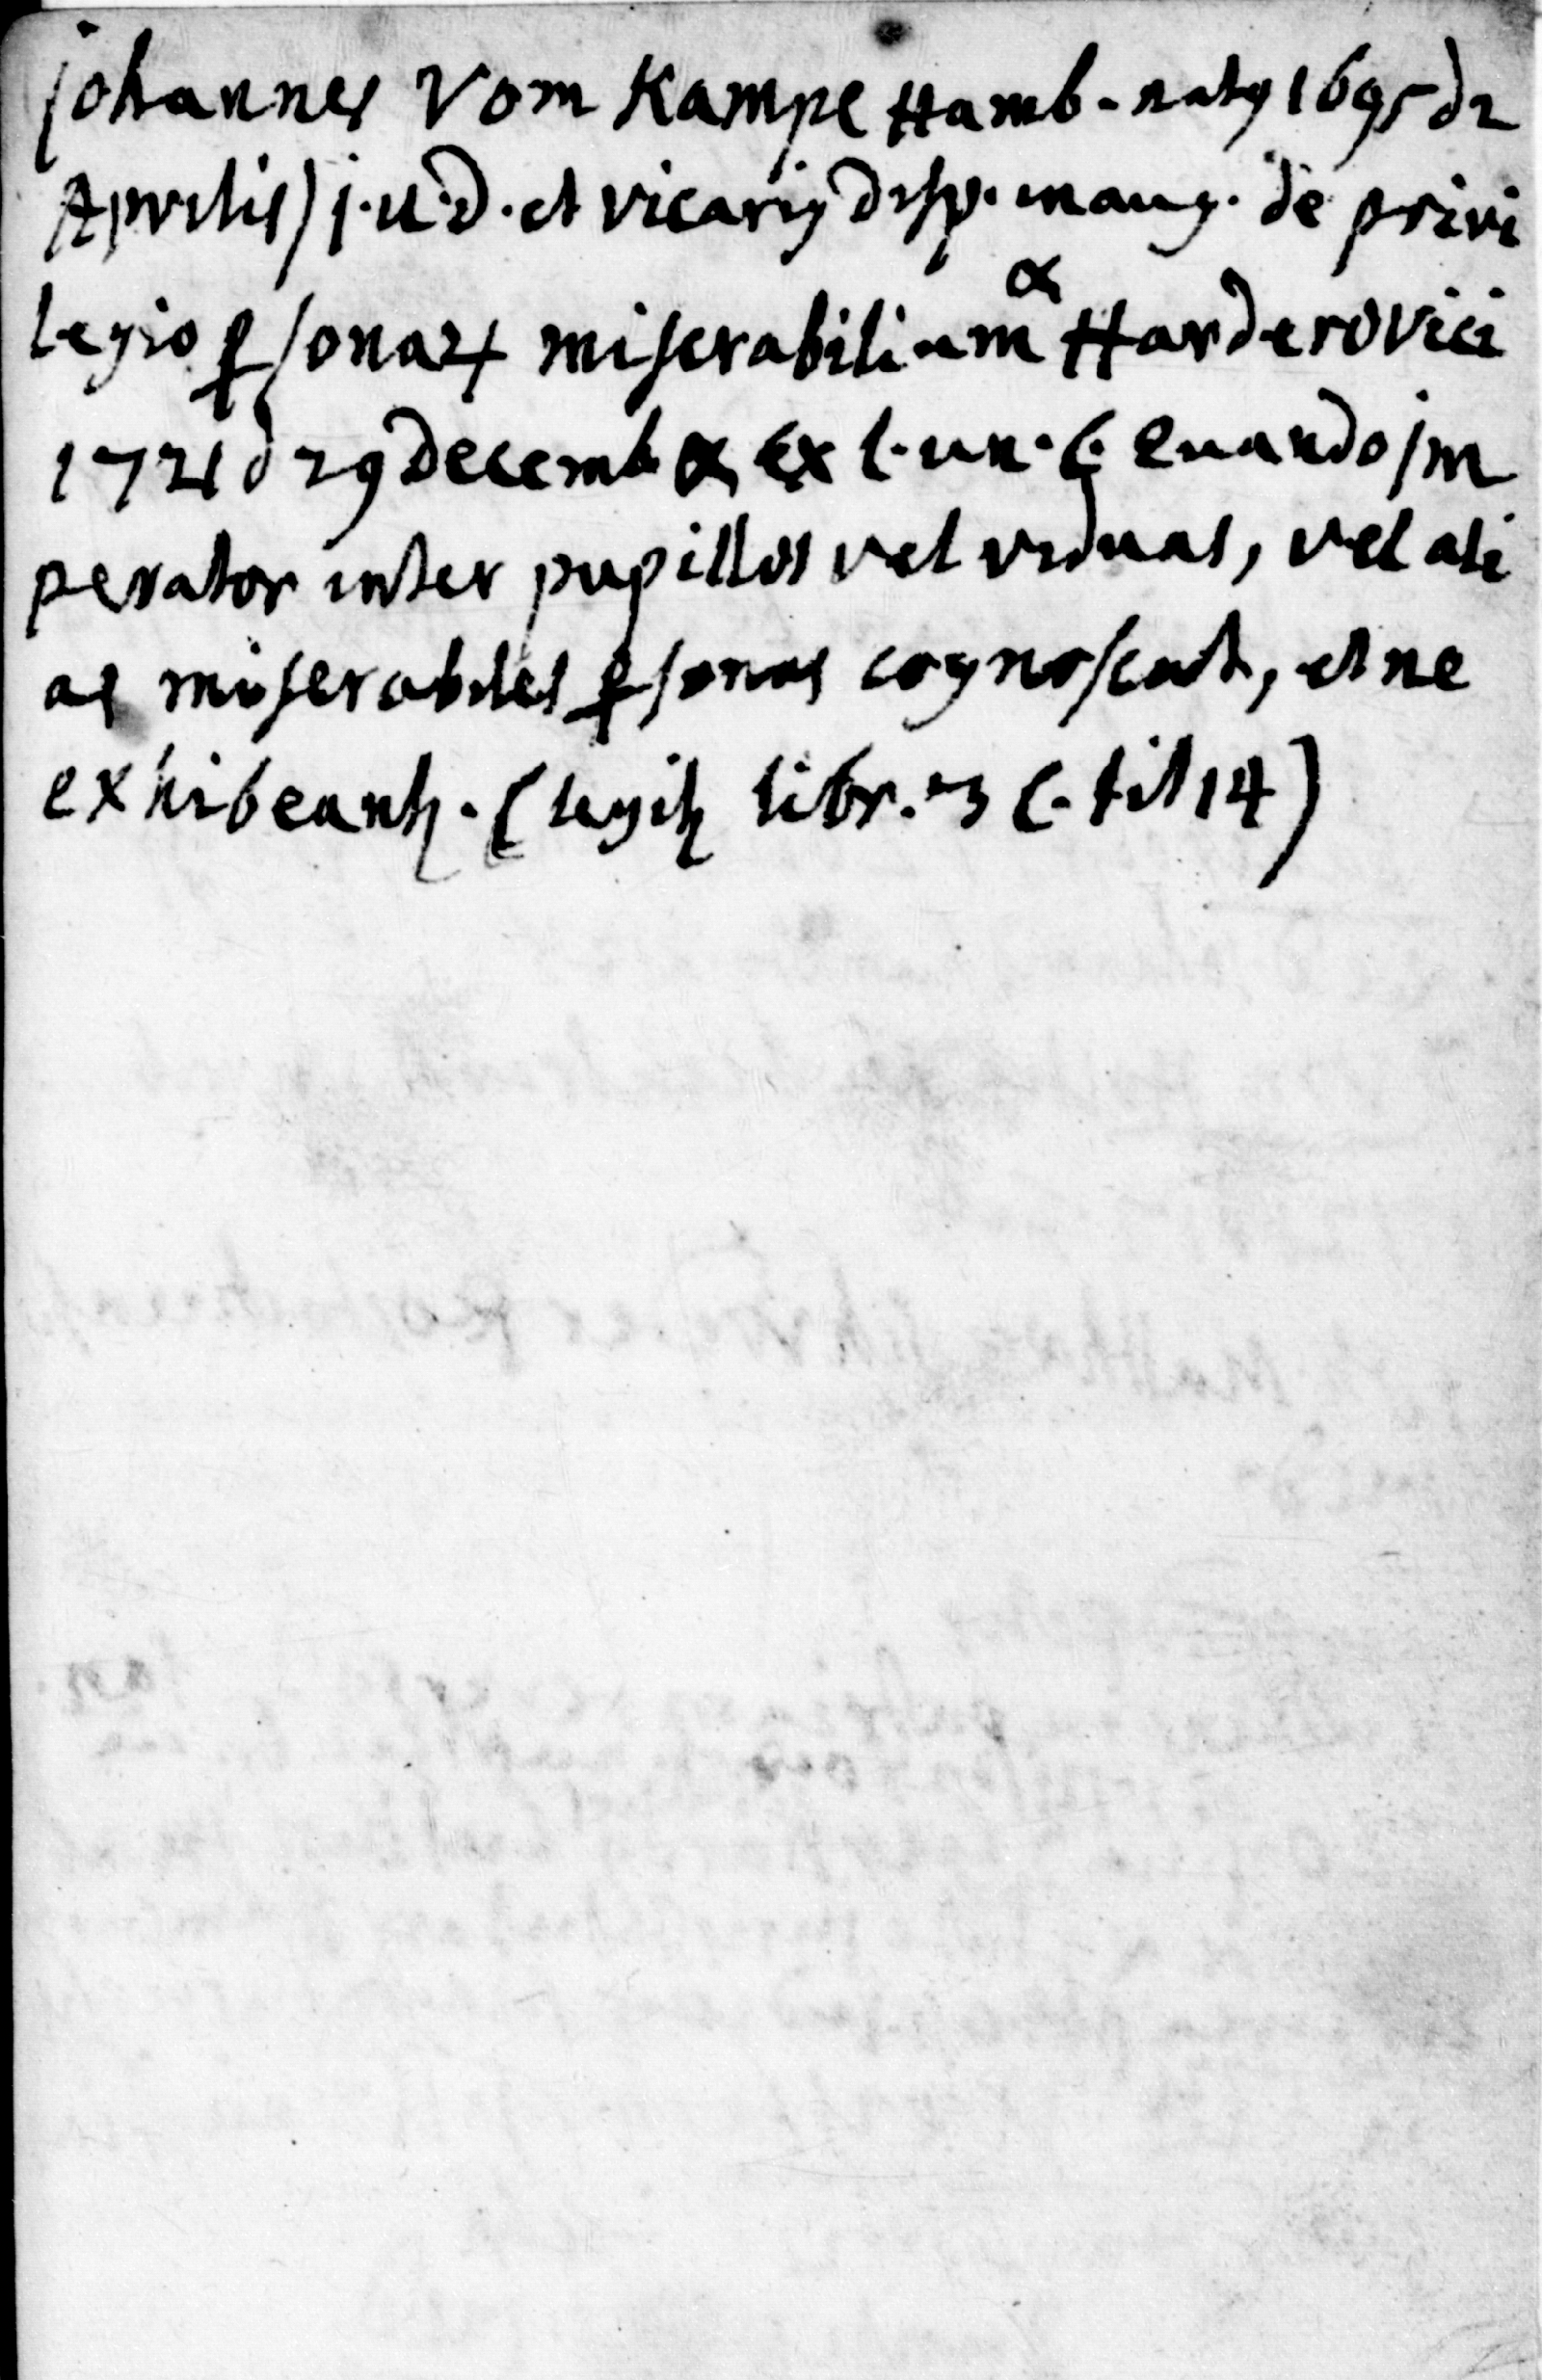 Johannes Vom Kampe Hamb. natꝯ 1695 d 2
Aprilis) J.U.D. et vicariꝯ disp. inaug. de privi
legio ꝑsonaꝝ miserabilium α Harderovici
1721 d 29 Decemb α ex l. un. C. Quando Im
perator inter pupillos vel viduas, vel ali
as miserabiles ꝑsonas cognoscat, et ne
exhibeantꝛ. (legitꝛ libr. 3 C. tit 14)